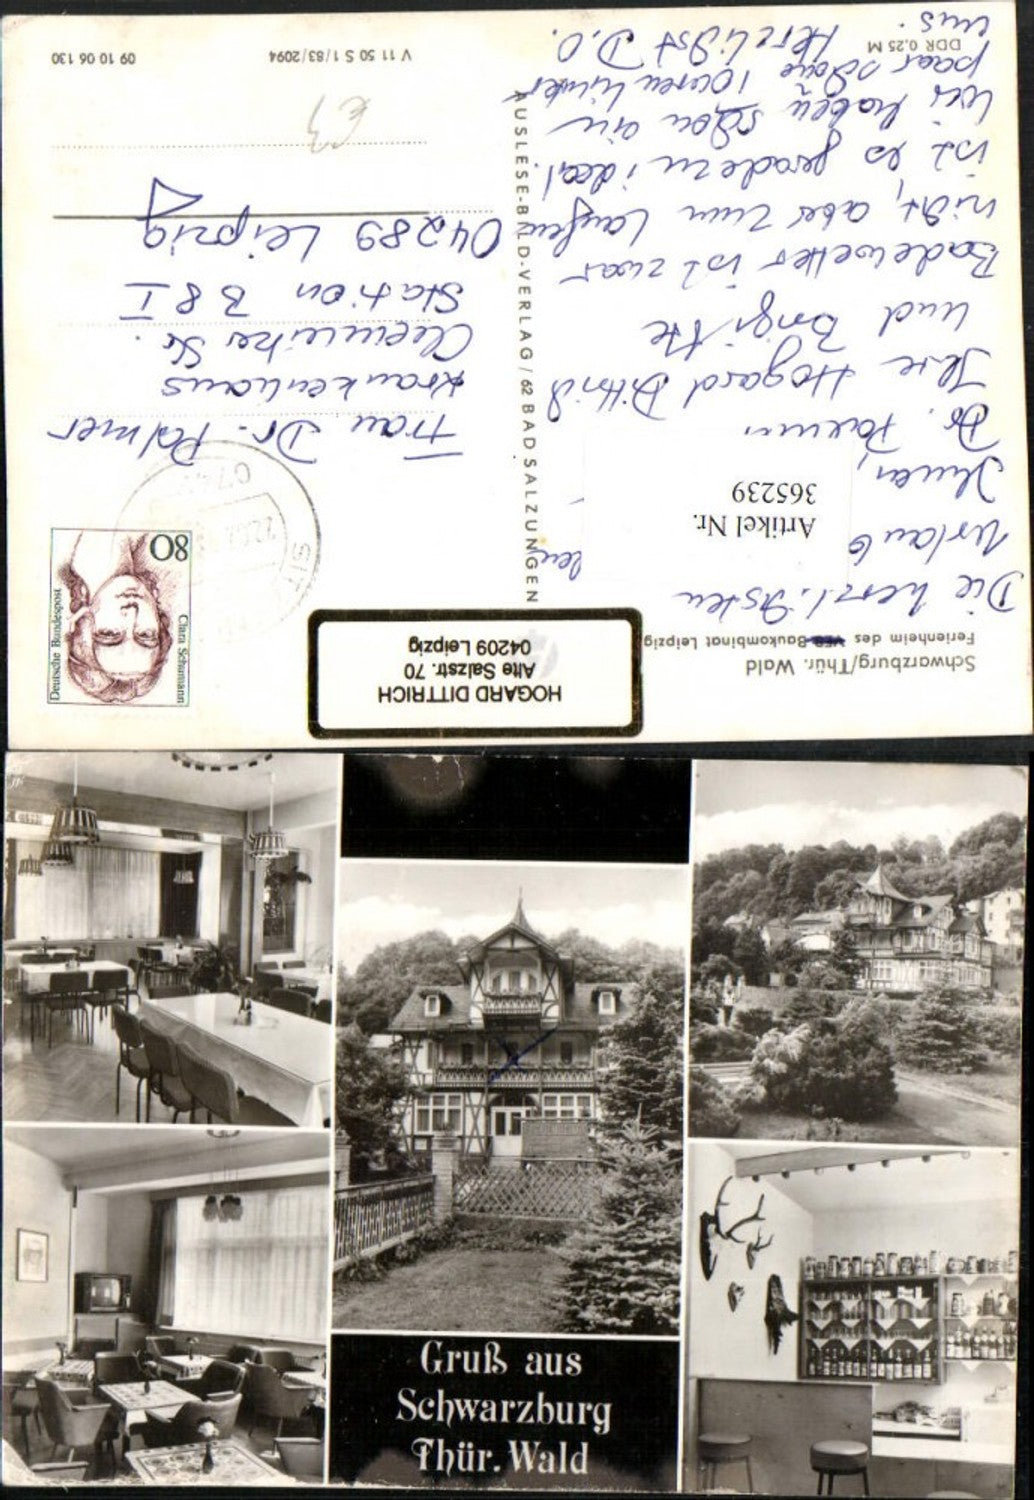 Schwarzburg/Thür. Wald
Ferienheim des VEB Baukombinat Leipzig
HOGARD DITTRICH
Alte Salzstr. 70
04209 Leipzig
Die herzl.
Urlaub
Artikel Nr.
365239
Ihre Hogard Dittrich
und Brigitte
Badewetter ist zwar
nicht, aber zum Laufen
ist es geradezu ideal.
Wir haben schon ein
paar schöne Touren hinter
uns. Herzlichst D.O.
DDR 0,25 M
AUSLESE-BILD-VERLAG / 62 BAD SALZUNGEN
Clara Schumann
Deutsche Bundespost
80
Frau Dr. Palmer
Krankenhaus
Chemnitzer Str.
Station B 8 I
04289 Leipzig
€3
V 11 50 S 1/83/2094
09 10 06 130
Gruß aus
Schwarzburg
Thür. Wald